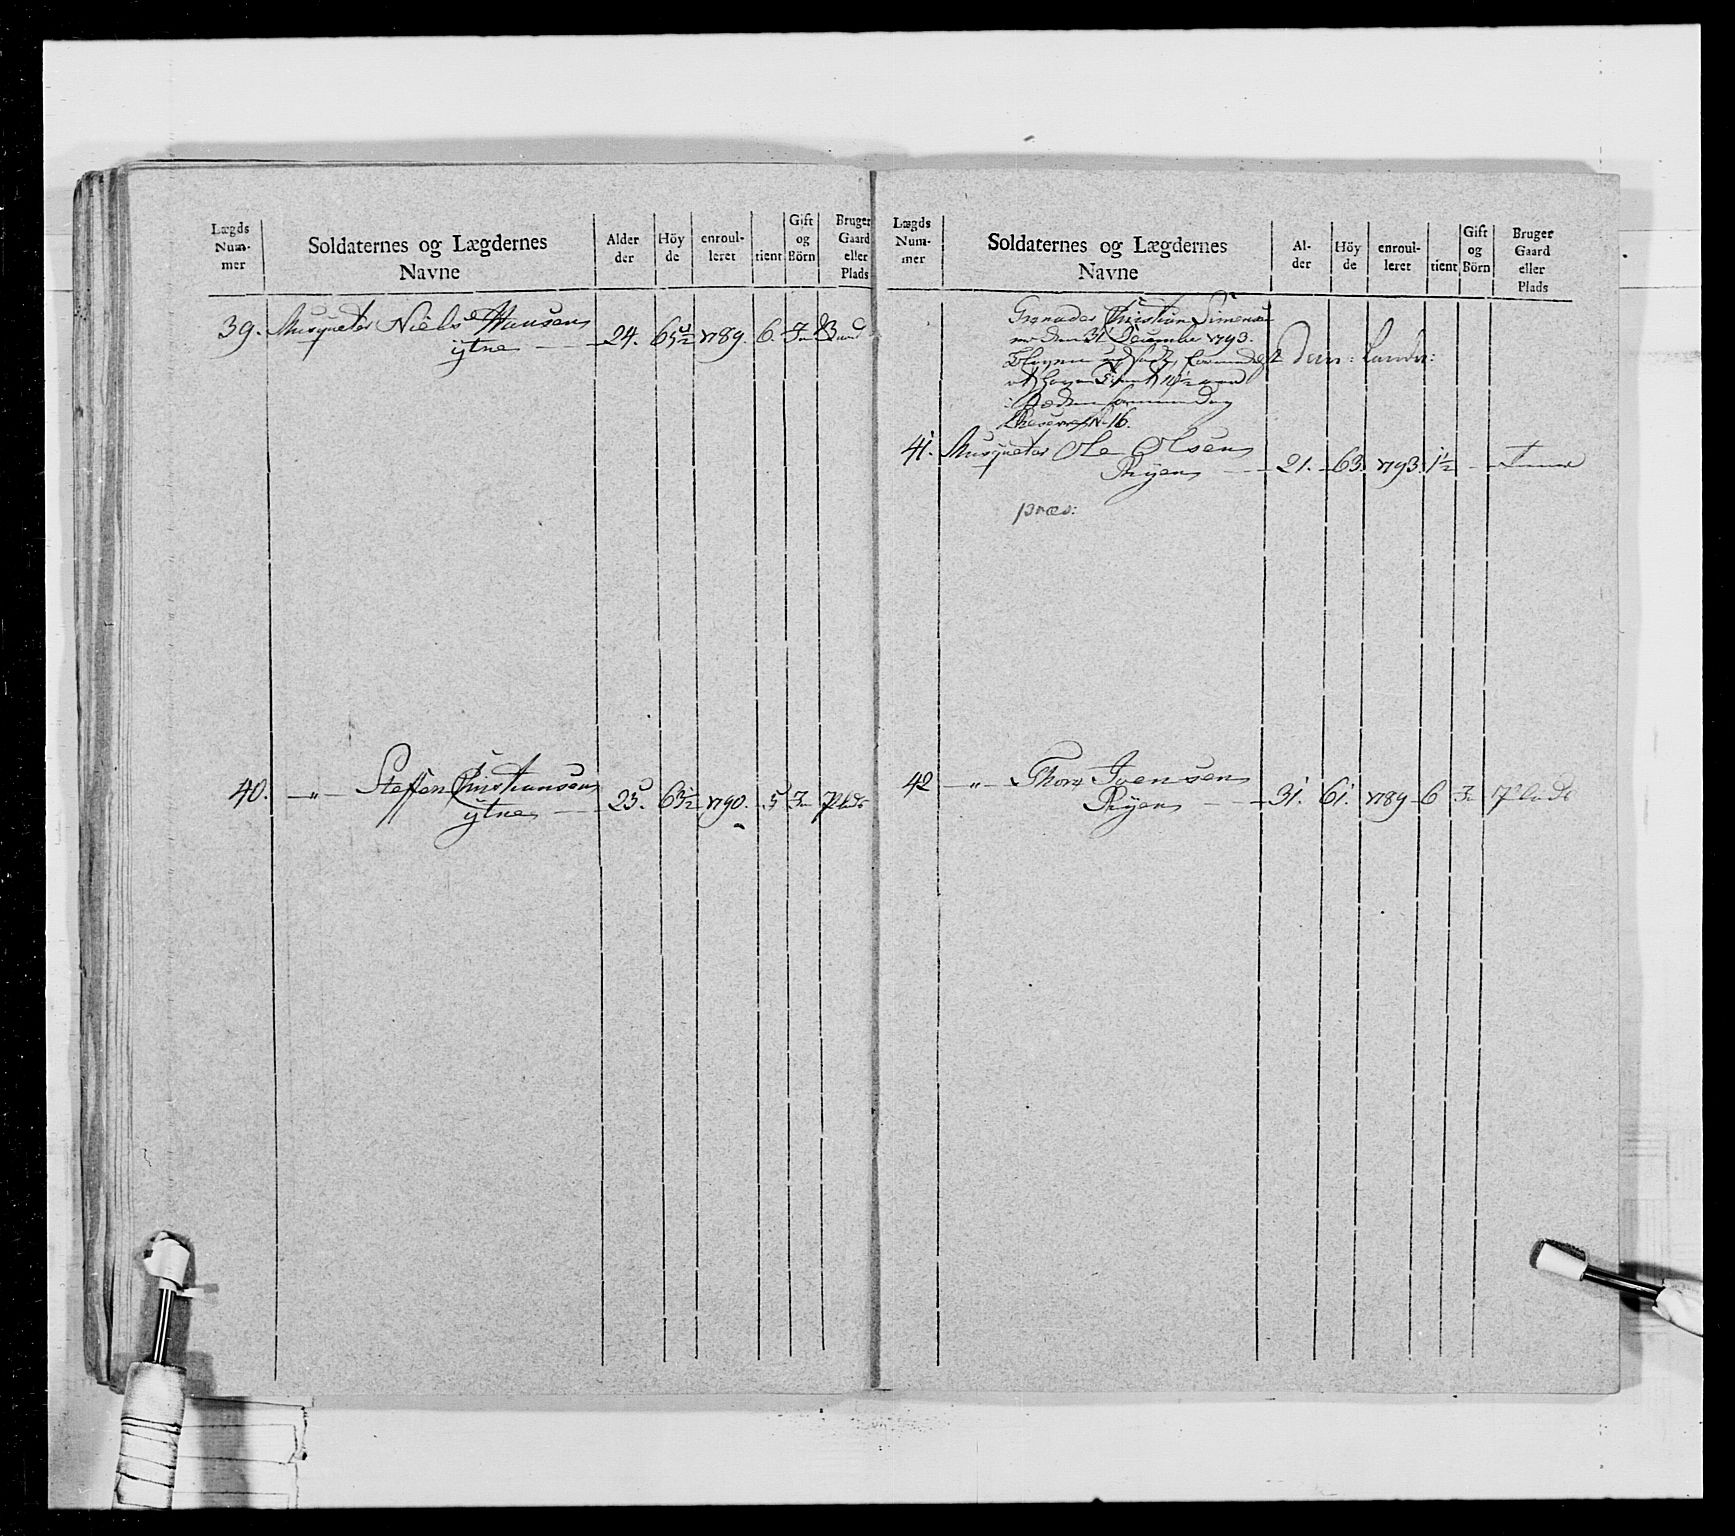 Lægds Num- mer
Soldaternes og Lægdernes Navne
Alder der
Höy de
enroul- leret
tient
Gift og Börn
Bruger Gaard eller Plads
39. Musqueter Niels Hansen
ytne 24. 65 1/2 1789. 6. J
40. —〃— Steffen Christiansen
ytne 25. 63 1/2 1790. 5 J Plads
Lægds Num- mer
Soldaternes og Lægdernes Navne
Al- der
Höy de
enroul- leret
tient
Gift og Börn
Bruger Gaard eller Plads
Grenadeer Christian Simensen
er den 31 December 1793.
tient 10 1/2 aar
Reserve No 16.
41. Musqueter Ole Olsen
Ryen 21. 63. 1793. 1 1/2
præs:
42 —〃— Thore Ivensen
Ryen 31. 61. 1789 6 J Plads